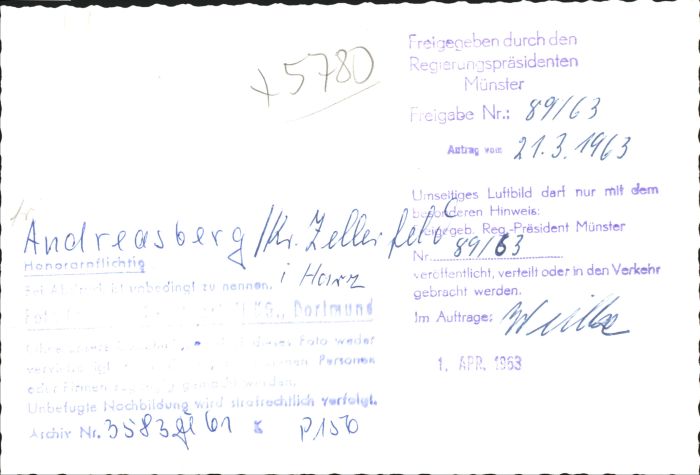 +5780
Freigegeben durch den
Regierungspräsidenten
Münster
Freigabe Nr.: 89/63
Antrag vom 21.3.1963
Umseitiges Luftbild darf nur mit dem
besonderen Hinweis:
Freigegeb. Reg.-Präsident Münster
Nr. 89/63
veröffentlicht, verteilt oder in den Verkehr
gebracht werden.
Im Auftrage:
1. APR. 1963
Andreasberg/Kr. Zellerfeld
i Harz
Honorarpflichtig
Bei Abdruck ist unbedingt zu nennen.
Dortmund
dieses Foto weder
Personen
oder Firmen werden.
Unbefugte Nachbildung wird strafrechtlich verfolgt.
Archiv Nr. 3583 61 P150